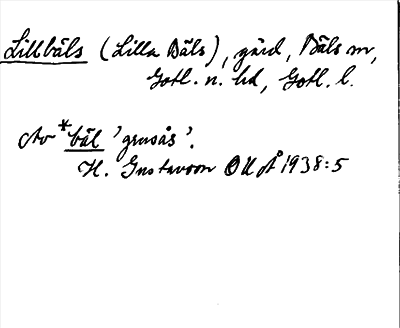 Lillbäls (Lilla Bäls), gård, Bäls sn,
Gotl. n. hd, Gotl. l.
Av *bäl 'grusås'.
H. Gustavson OUÅ 1938:5